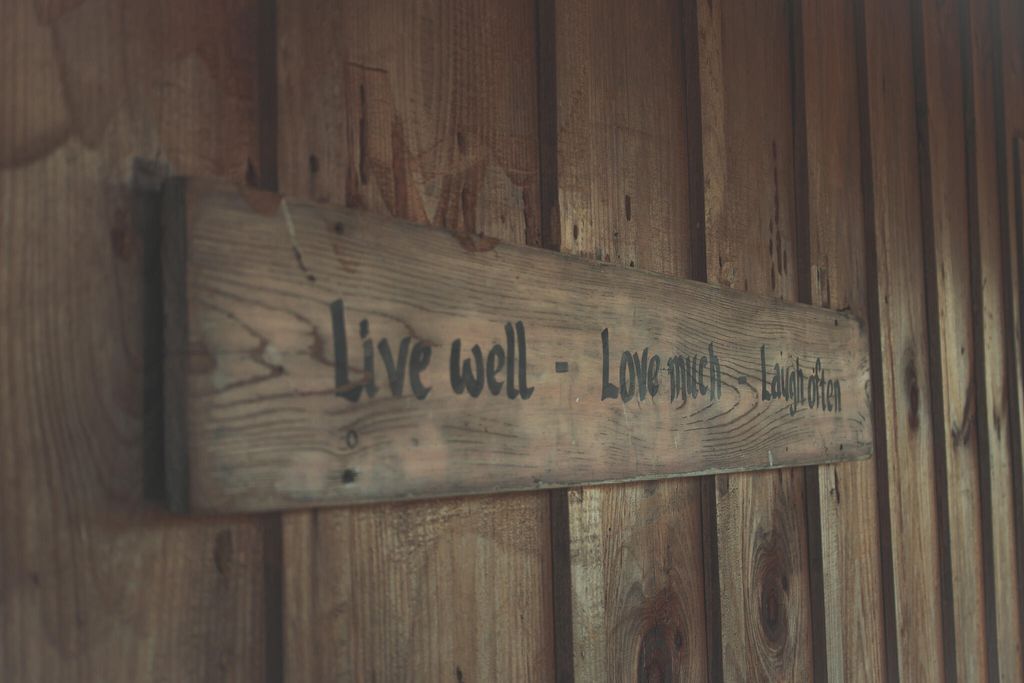 Live well - Love much - Laugh often